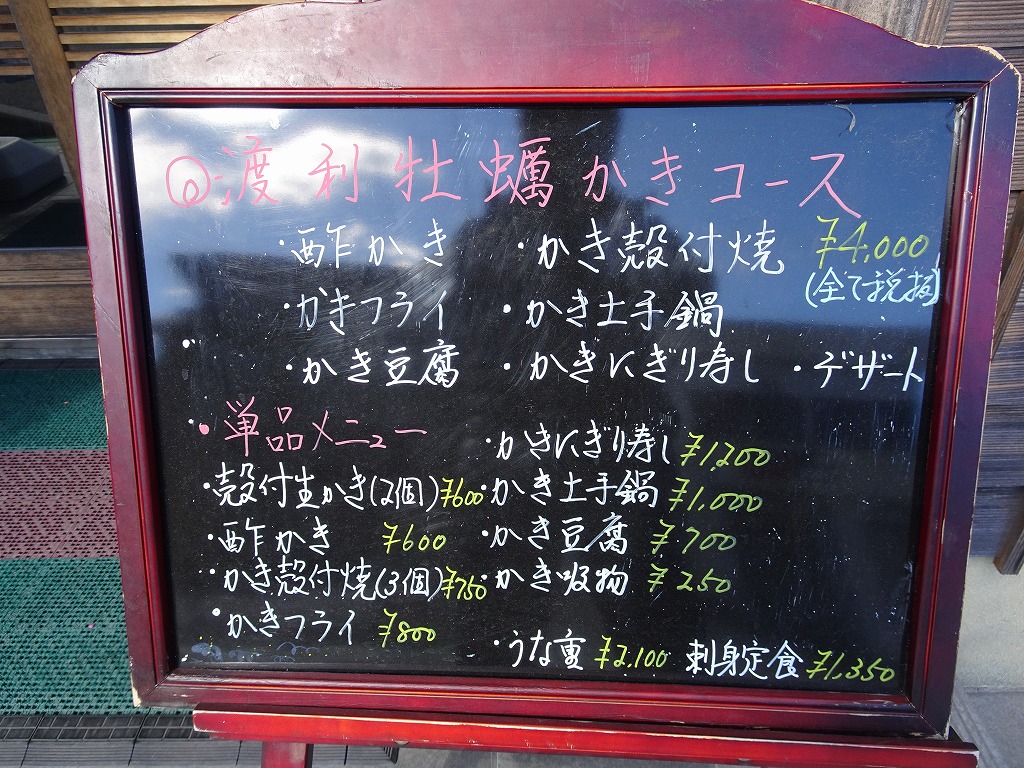 ◎渡利牡蠣かきコース
・酢かき ・かき殻付焼 ¥4,000
(全て税抜)
・かきフライ ・かき土手鍋
・かき豆腐 ・かきにぎり寿し ・デザート
・単品メニュー
・殻付生かき(2個)¥600
・酢かき ¥600
・かき殻付焼(3個)¥750
・かきフライ ¥800
・かきにぎり寿し ¥1,200
・かき土手鍋 ¥1,000
・かき豆腐 ¥700
・かき吸物 ¥250
・うな重 ¥2,100 刺身定食 ¥1,350